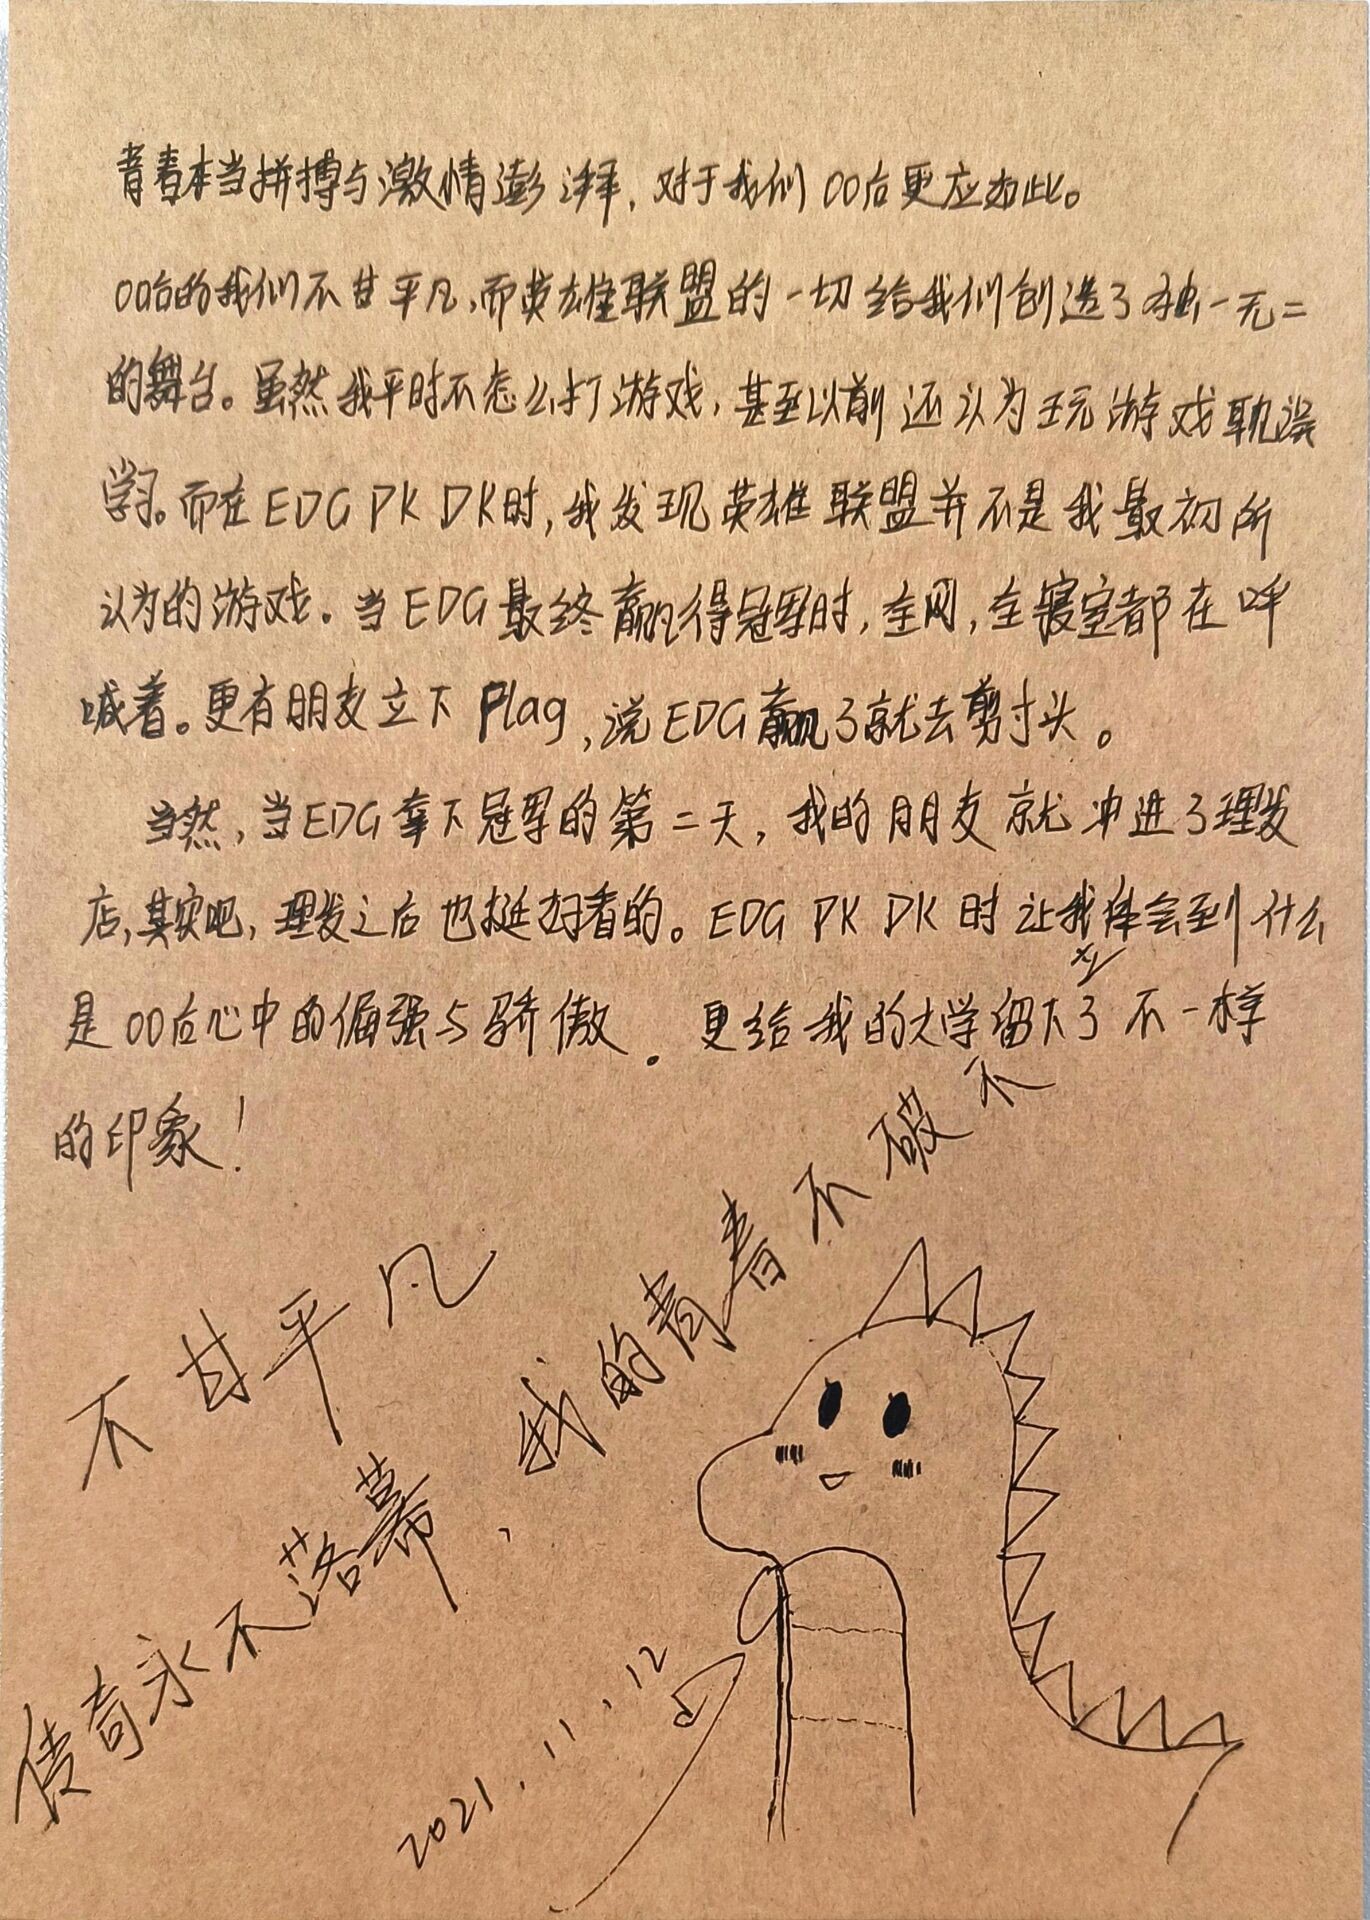 青春本当拼搏与激情澎湃，对于我们00后更应如此。
00后的我们不甘平凡，而英雄联盟的一切给我们创造了独一无二
的舞台。虽然我平时不怎么打游戏，甚至以前还认为玩游戏耽误
学习。而在EDG PK DK时，我发现英雄联盟并不是我最初所
认为的游戏。当EDG最终赢得冠军时，全网，全寝室都在呼
喊着。更有朋友立下Flag，说EDG赢了就去剪寸头。
当然，当EDG拿下冠军的第二天，我的朋友就冲进了理发
店，其实吧，理发之后也挺好看的。EDG PK DK时让我体会到什么
是00后心中的倔强与骄傲。更给我的大学留下了不一样
的印象！
不甘平凡
传奇永不落幕，我的青春不破不
2021.11.12